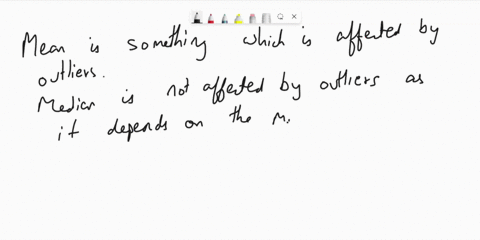 Mean is something which is affected by
outliers.
Median is not affected by outliers as
it depends on the m